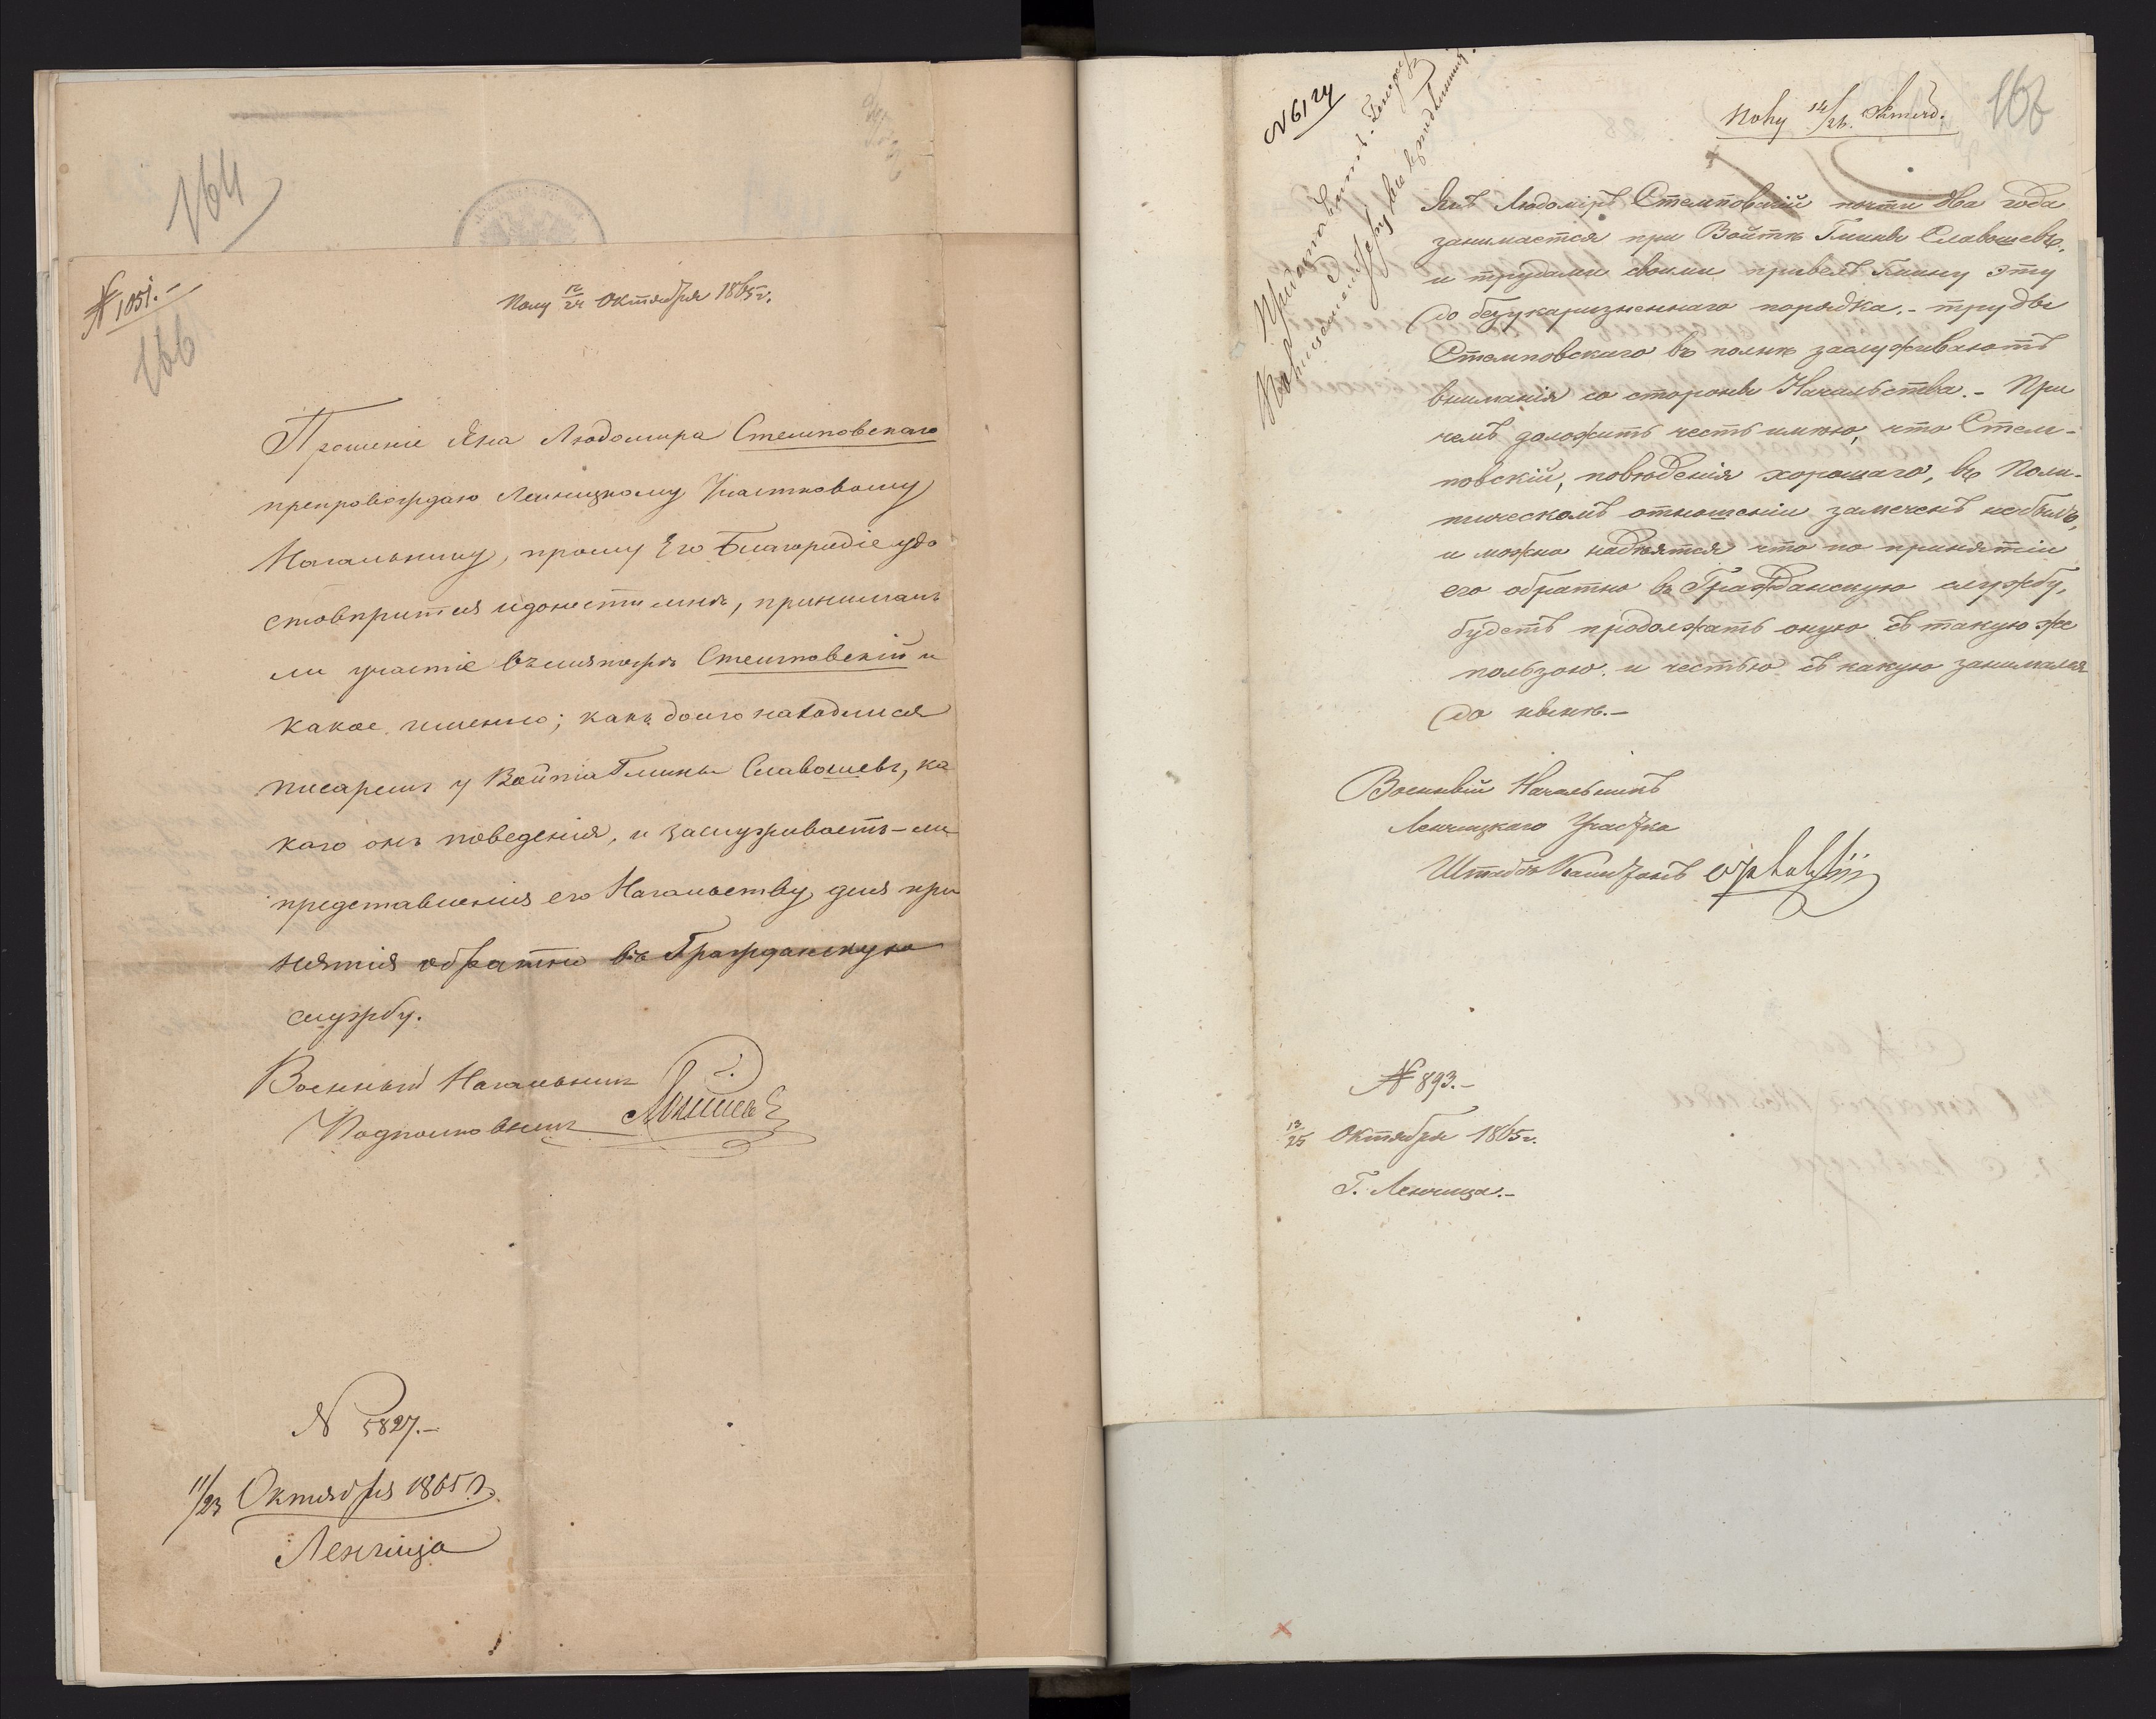 164
№ 1051.-
166
Полу 12/24 Октября 1865 г.
Прошеніе Яна Людомира Стемповскаго
препровождаю Ленчицкому Участковому
Начальнику, прошу Его Благородіе удо
стовѣрится и донести мнѣ, принималъ
ли участіе въ мятежѣ Стемповскій и
какое именно; какъ долго находился
писаремъ у Войта Гмины Славошевъ, ка
каго онъ поведенія, и заслуживаетъ-ли
представленія его Начальству для при
нятія обратно въ Гражданскую
службу.
Военный Начальникъ
Подполковникъ
N 5827.-
11/23 Октября 1865 г.
Ленчица
N 6124
Полу 14/26. Октяб.
167
Янъ Людоміръ Стемповскій почти два года
занимается при Войтѣ Гмины Славошевъ,
и трудами своими привелъ Гмину эту
до безукаризненнаго порядка.- труды
Стемповскаго въ полнѣ заслуживаютъ
вниманія со стороны Начальства.- При
чемъ доложить честь имѣю, что Стем-
повскій, повѣденія хорошаго, въ Поли-
тическомъ отношеніи замеченъ не былъ,
и можно надѣятся что по принятіи
его обратно въ Гражданскую службу,
будетъ продолжать оную съ такую же
пользою и честью съ какую занимался
до нынѣ.-
Военный Начальникъ
Ленчицкаго Участка
Штабсъ Капитанъ
№ 893.-
13/25 Октября 1865 г.
Г. Ленчица.-